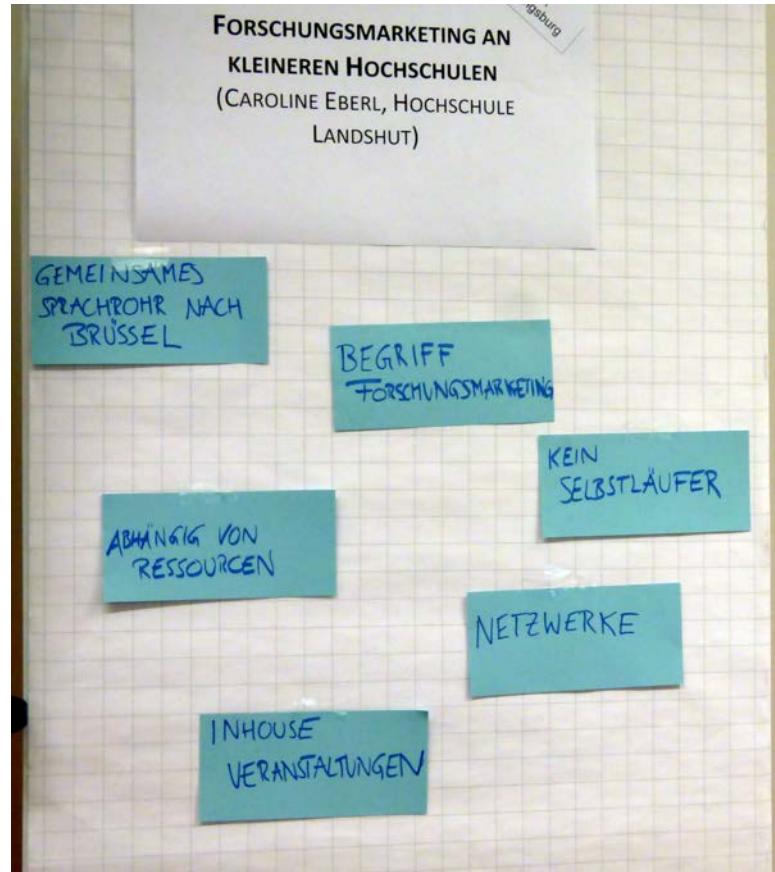 FORSCHUNGSMARKETING AN
KLEINEREN HOCHSCHULEN
(CAROLINE EBERL, HOCHSCHULE
LANDSHUT)
GEMEINSAMES
SPRACHROHR NACH
BRÜSSEL
BEGRIFF
FORSCHUNGSMARKETING
KEIN
SELBSTLÄUFER
ABHÄNGIG VON
RESSOURCEN
NETZWERKE
INHOUSE
VERANSTALTUNGEN